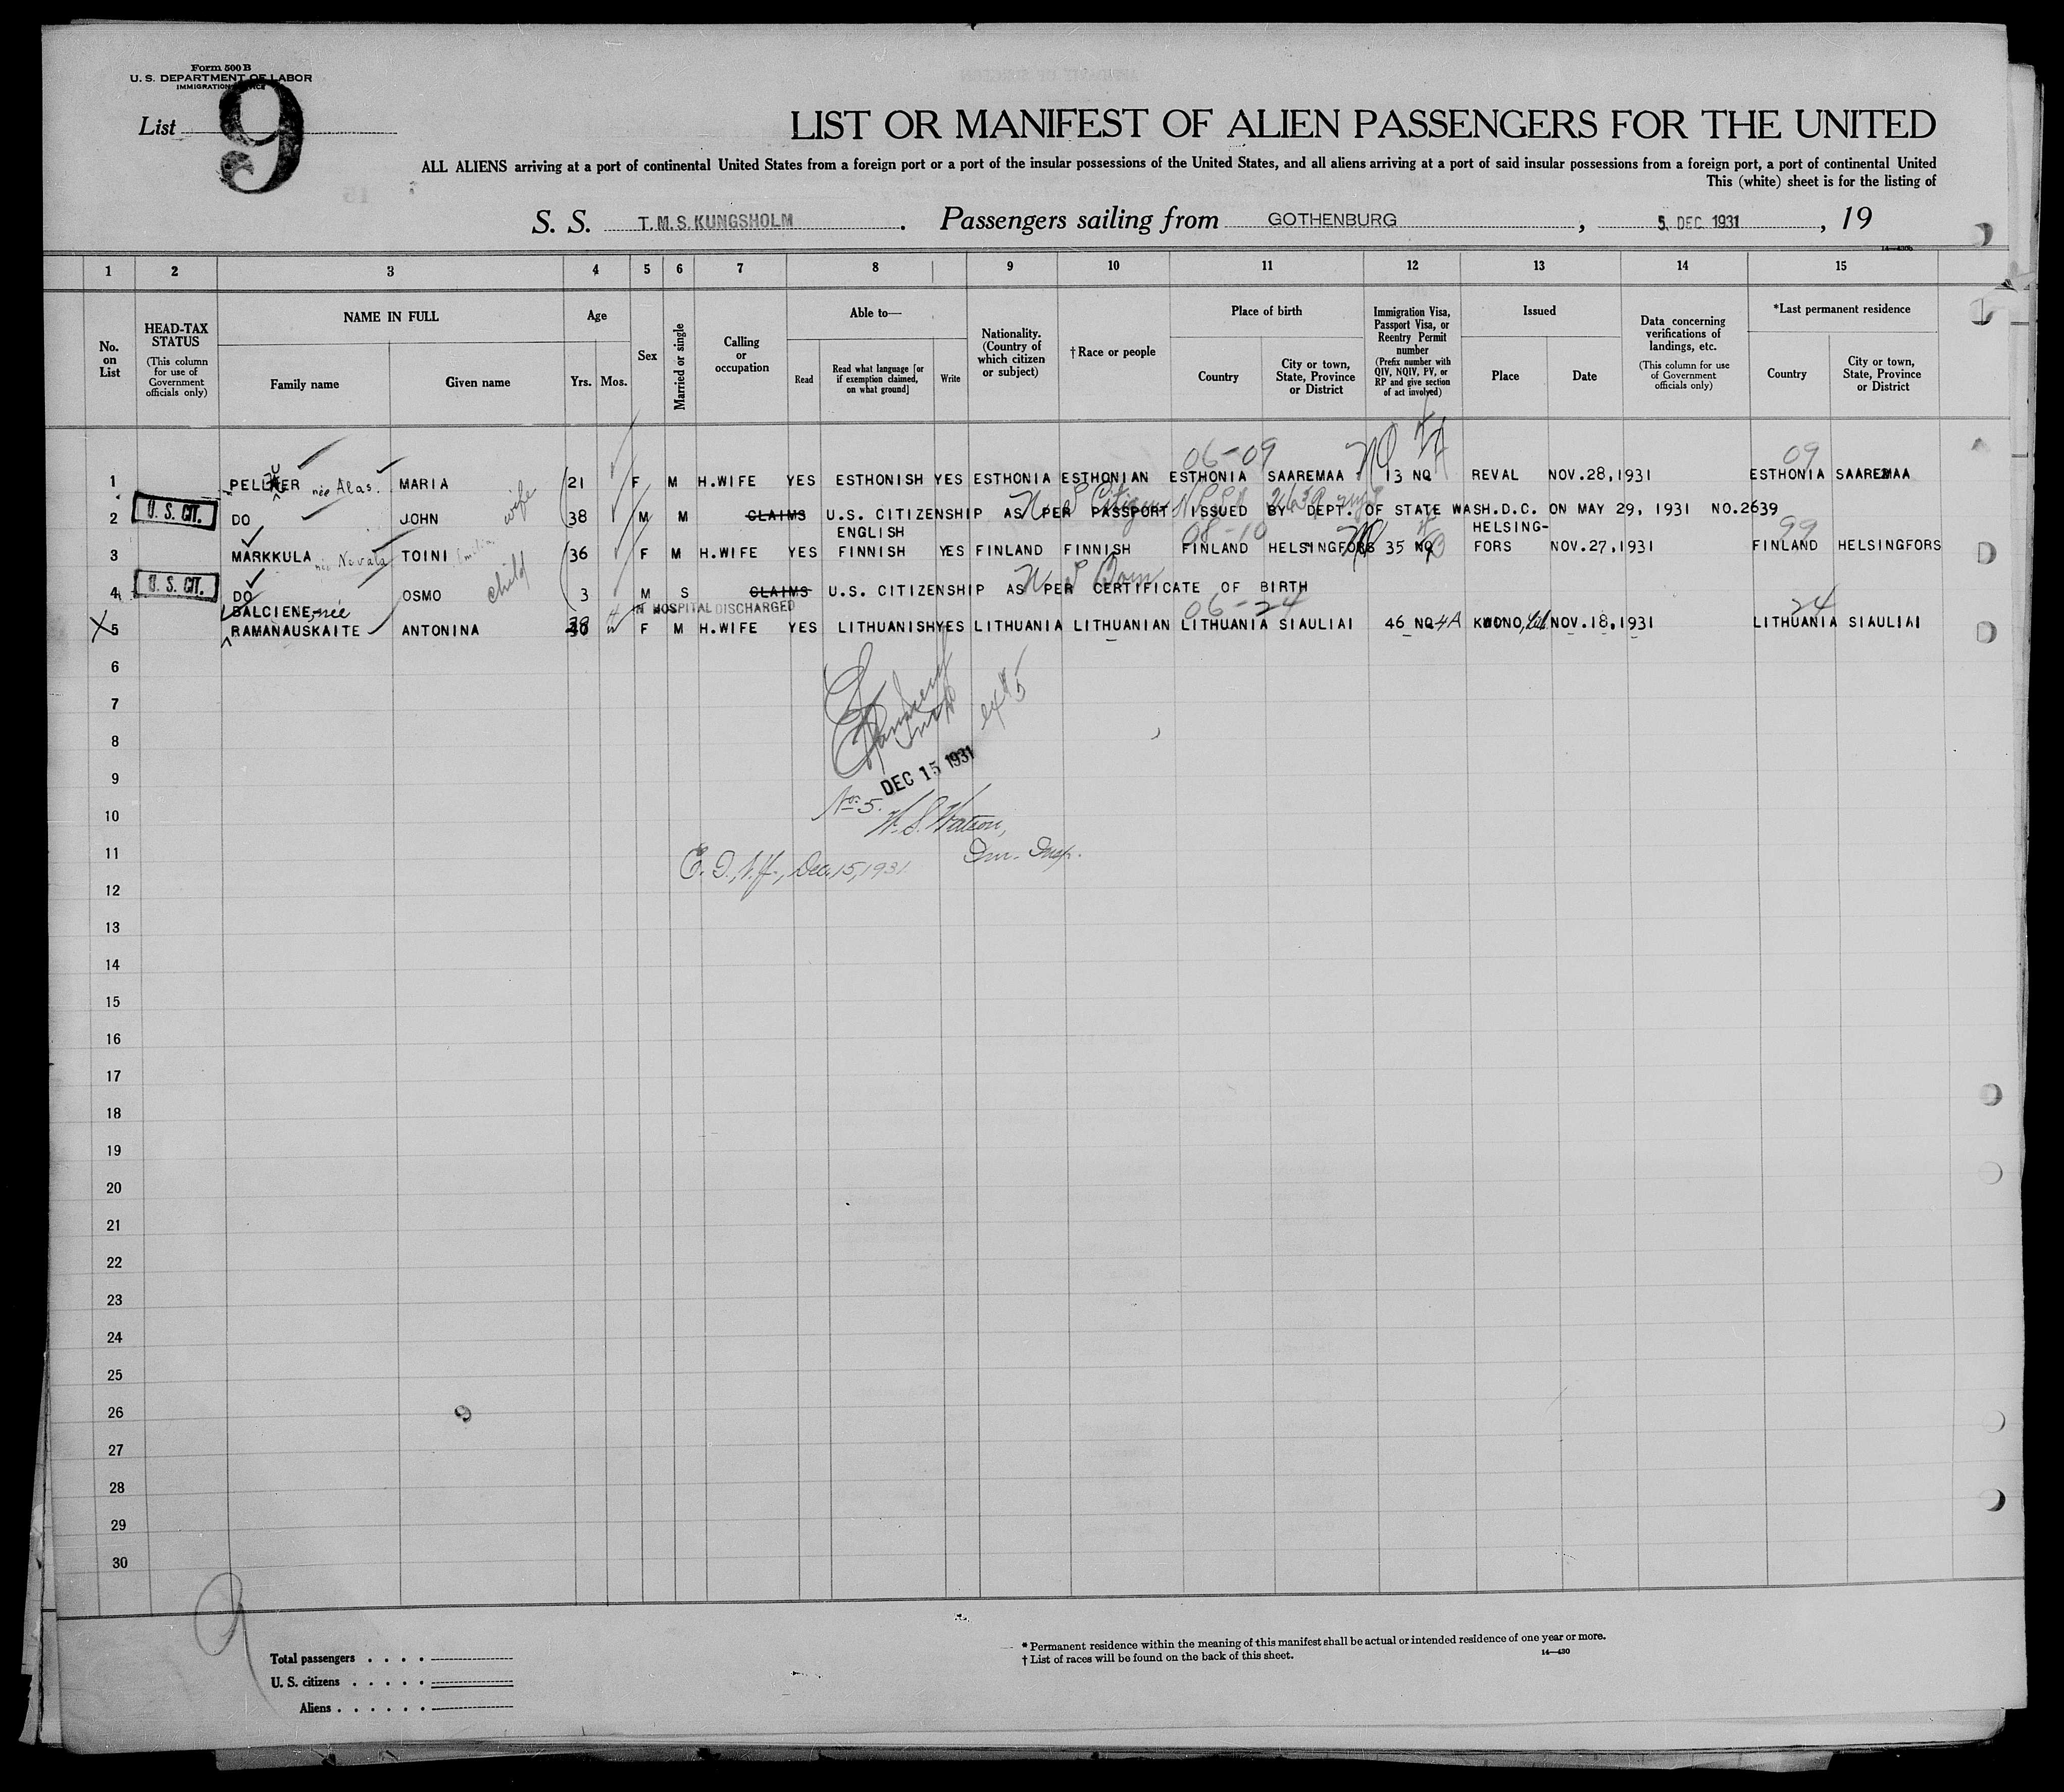 Form 500 B
U. S. DEPARTMENT OF LABOR
IMMIGRATION SERVICE
List 9
LIST OR MANIFEST OF ALIEN PASSENGERS FOR THE UNITED
ALL ALIENS arriving at a port of continental United States from a foreign port or a port of the insular possessions of the United States, and all aliens arriving at a port of said insular possessions from a foreign port, a port of continental United
This (white) sheet is for the listing of
S. S. T.M.S. KUNGSHOLM. Passengers sailing from GOTHENBURG, 5. DEC. 1931, 19
1 2 3 4 5 6 7 8 9 10 11 12 13 14 15
No. on List
HEAD-TAX STATUS (This column for use of Government officials only)
NAME IN FULL
Family name
Given name
Age
Yrs. Mos.
Sex
Married or single
Calling or occupation
Able to—
Read
Read what language [or if exemption claimed, on what ground]
Write
Nationality. (Country of which citizen or subject)
† Race or people
Place of birth
Country
City or town, State, Province or District
Immigration Visa, Passport Visa, or Reentry Permit number (Prefix number with QIV, NQIV, PV, or RP and give section of act involved)
Issued
Place
Date
Data concerning verifications of landings, etc. (This column for use of Government officials only)
*Last permanent residence
Country
City or town, State, Province or District
06-09 09
1 PELLER née Alas. MARIA 21 F M H.WIFE YES ESTHONISH YES ESTHONIA ESTHONIAN ESTHONIA SAAREMAA 13 NQ REVAL NOV.28,1931 ESTHONIA SAAREMAA
U. S. CIT.
2 DO JOHN wife 38 M M CLAIMS U.S. CITIZENSHIP AS PER PASSPORT ISSUED BY DEPT. OF STATE WASH.D.C. ON MAY 29, 1931 NO.2639
ENGLISH 08-10 HELSING- 99
3 MARKKULA née Nevala TOINI 36 F M H.WIFE YES FINNISH YES FINLAND FINNISH FINLAND HELSINGFORS 35 NQ FORS NOV.27,1931 FINLAND HELSINGFORS
U. S. CIT. U S Born
4 DO OSMO child 3 M S CLAIMS U.S. CITIZENSHIP AS PER CERTIFICATE OF BIRTH
BALCIENE, née IN HOSPITAL DISCHARGED 06-24 24
X 5 RAMANAUSKAITE ANTONINA F M H.WIFE YES LITHUANISH YES LITHUANIA LITHUANIAN LITHUANIA SIAULIAI 46 NQ 4A NOV.18,1931 LITHUANIA SIAULIAI
6
7
ex #5
8
9
DEC 15 1931
10
No. 5. W. S. Watson,
11
Imm. Insp.
Dec. 15, 1931
12
13
14
15
16
17
18
19
20
21
22
23
24
25
26
27
28
29
30
9
Total passengers
U. S. citizens
Aliens
* Permanent residence within the meaning of this manifest shall be actual or intended residence of one year or more.
† List of races will be found on the back of this sheet.
14—430